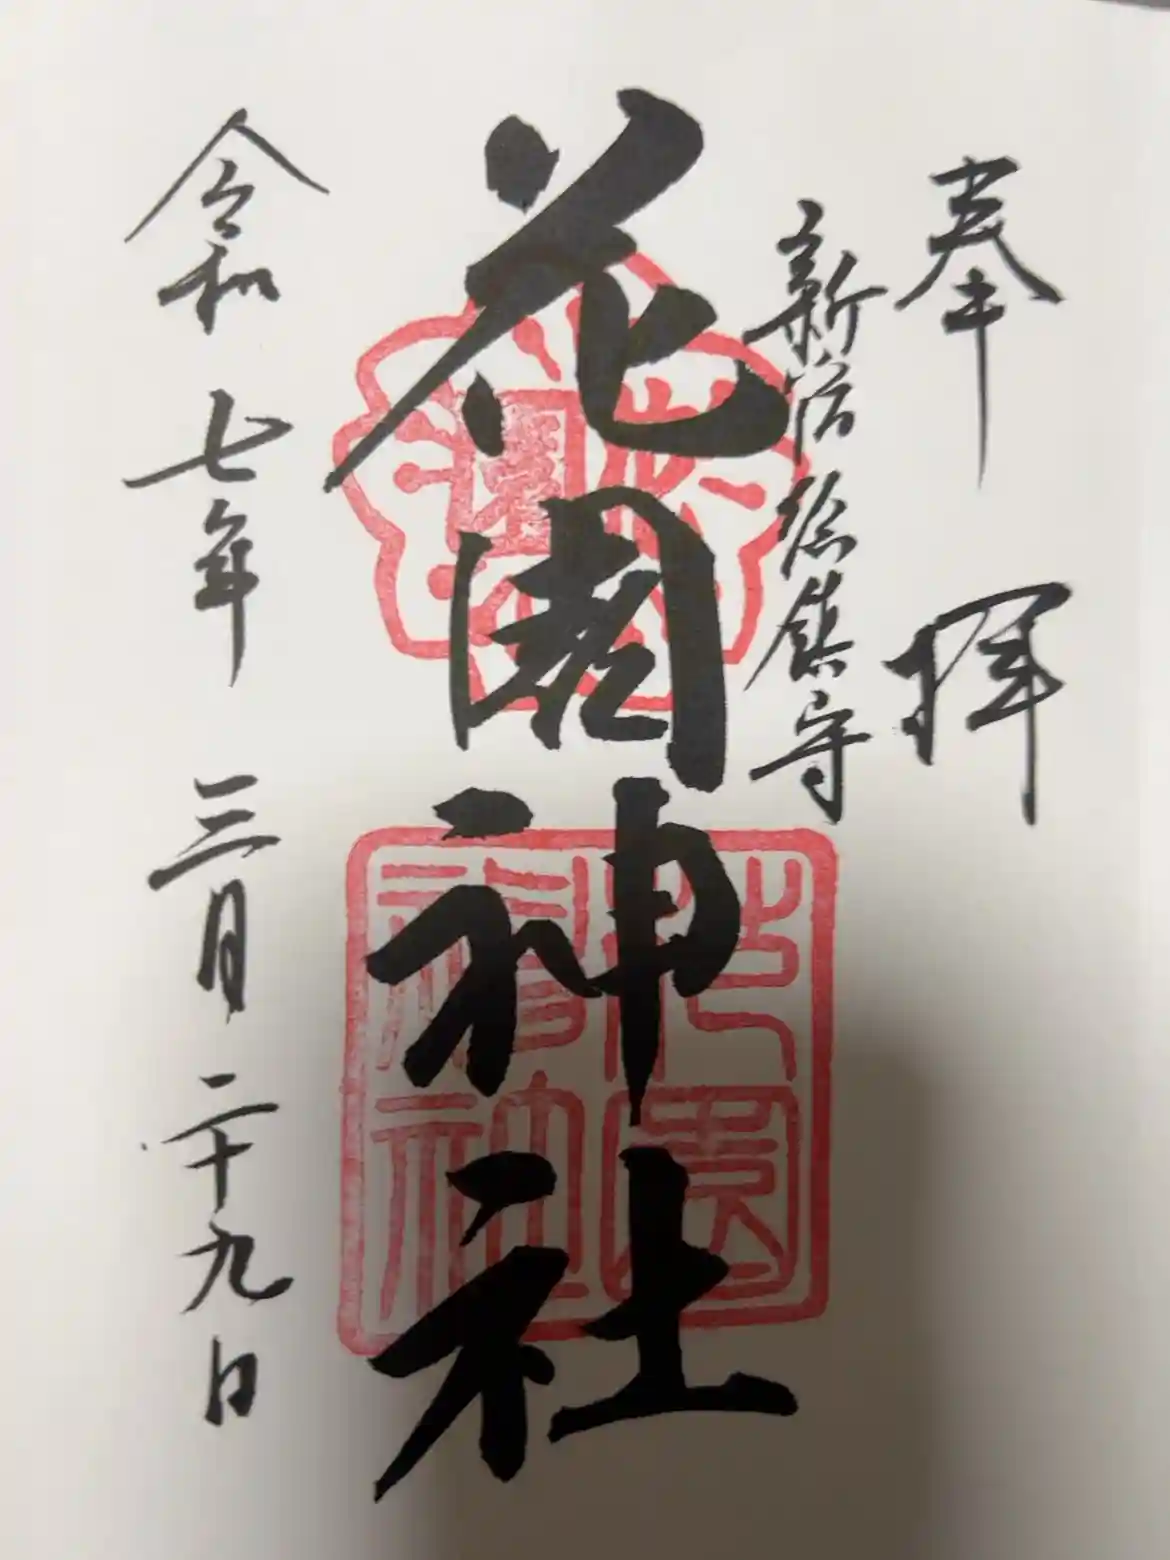 奉拝
新宿総鎮守
花園神社
花園
花園神社
令和七年三月二十九日